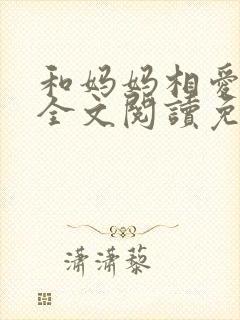 和妈妈相爱
全文閱讀免
潇潇藜